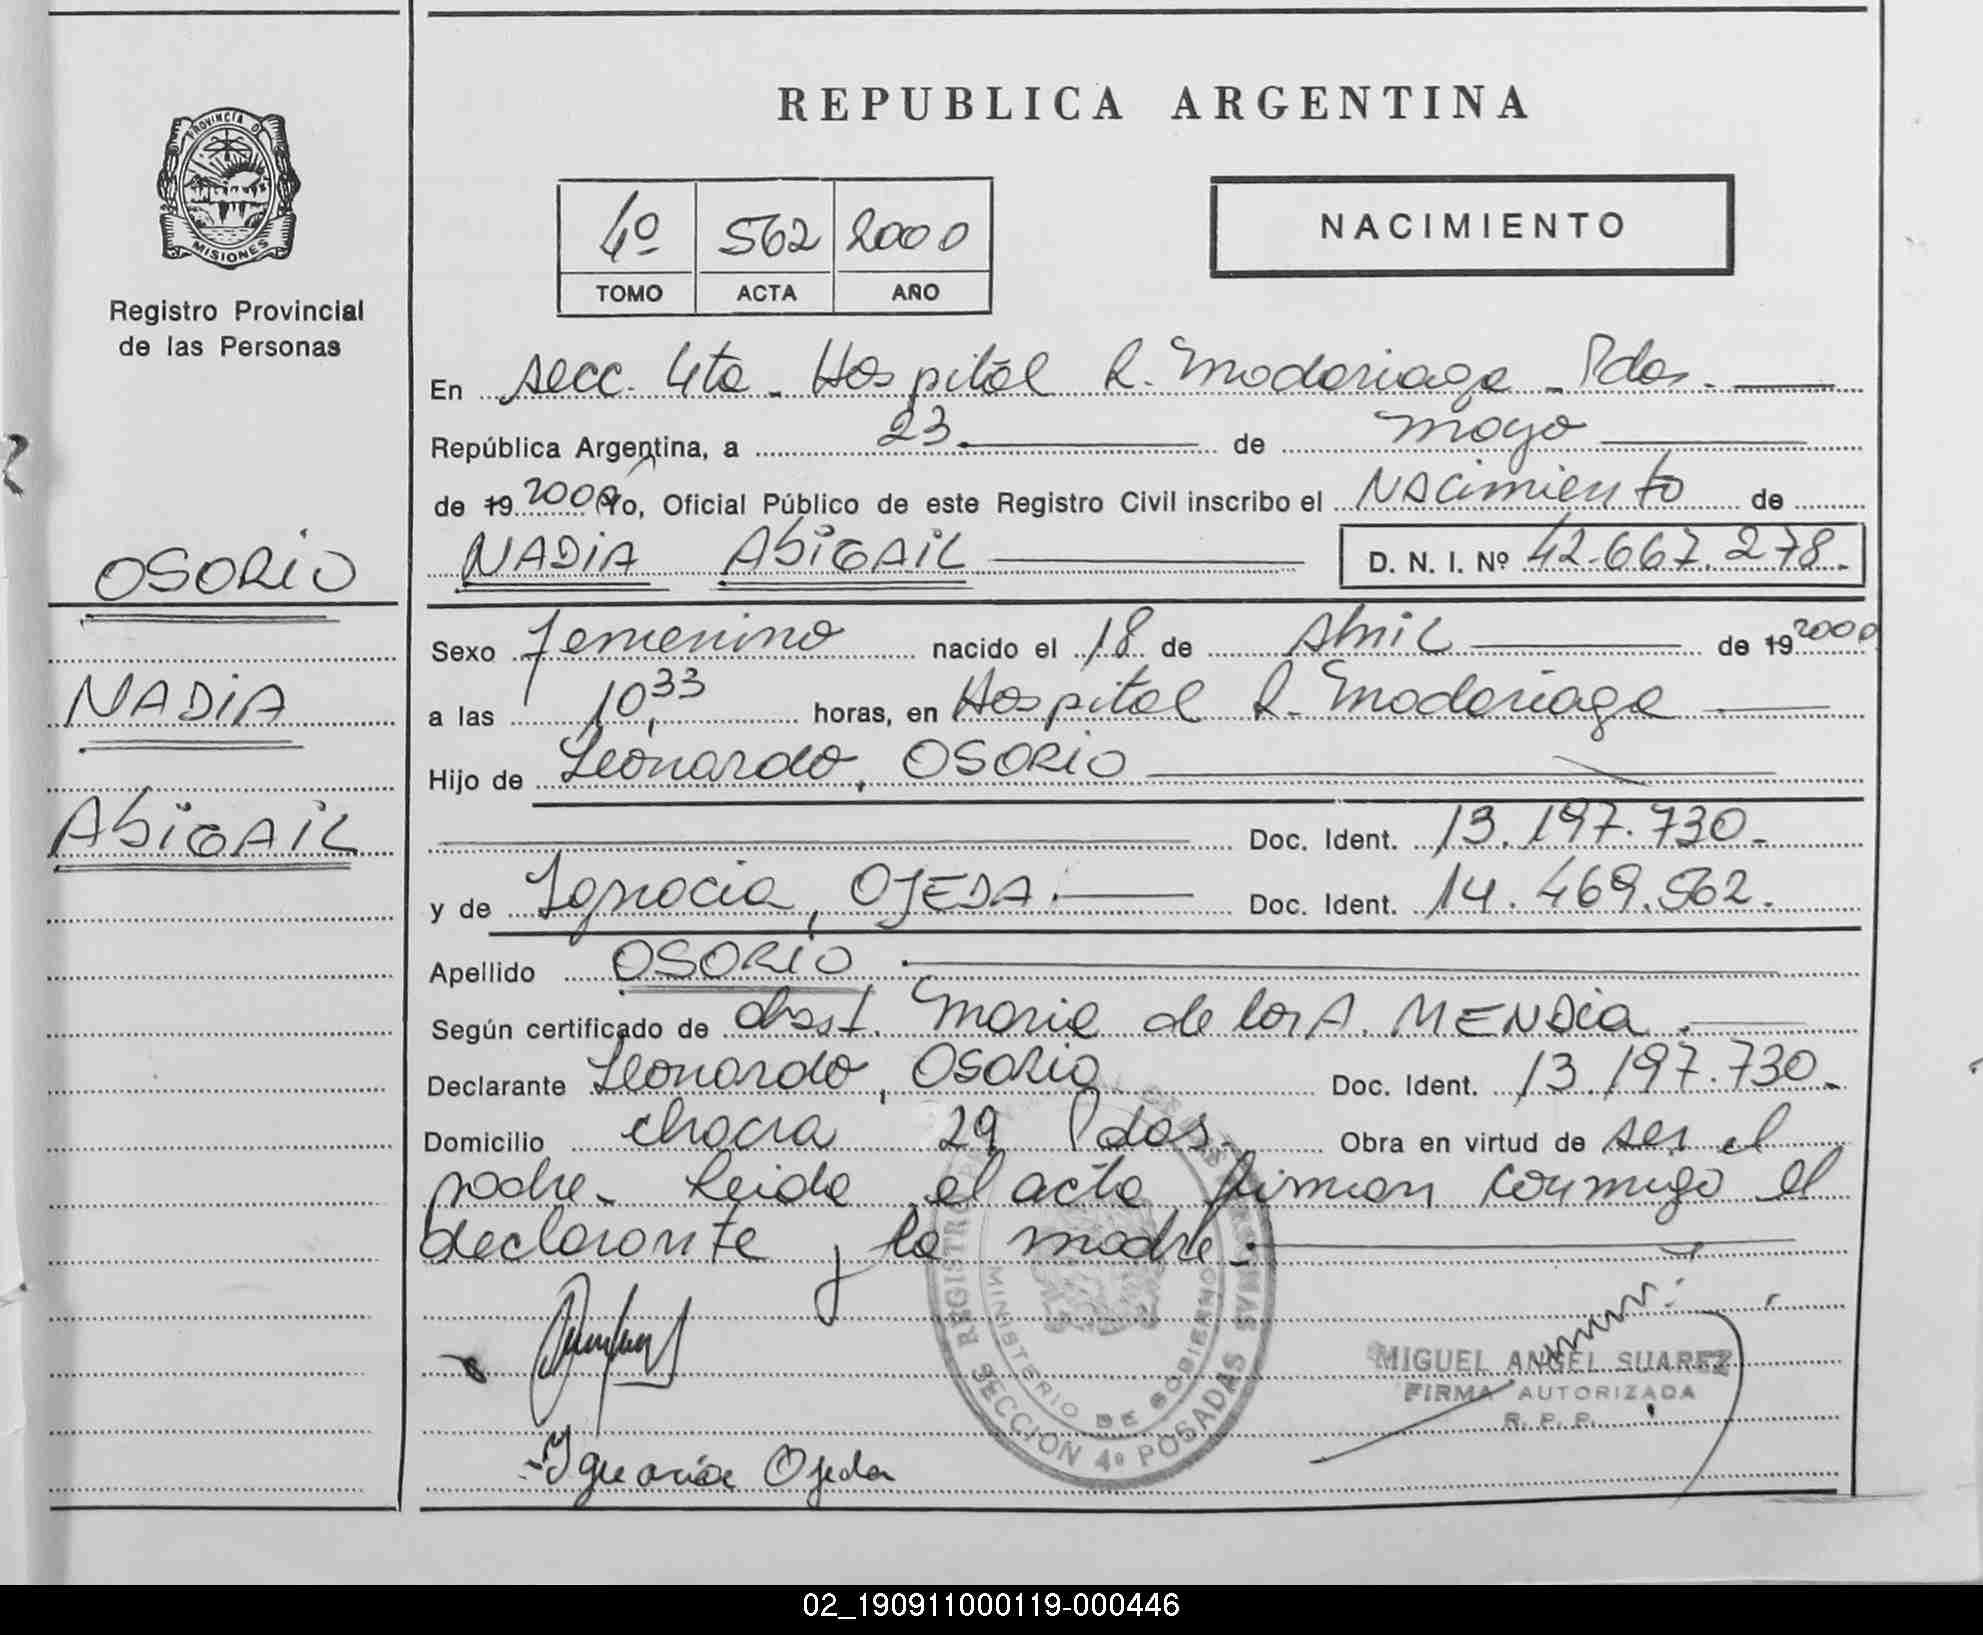 PROVINCIA DE
MISIONES
Registro Provincial
de las Personas
OSORIO
NADIA
ABIGAIL
REPUBLICA ARGENTINA
4º 562 2000
TOMO ACTA AÑO
NACIMIENTO
En secc. 4ta - Hospital R. Madariaga - Pdas.
República Argentina, a 23 de mayo
de 19 2000 Yo, Oficial Público de este Registro Civil inscribo el Nacimiento de
NADIA ABIGAIL D. N. I. Nº 42.667.278.
Sexo femenino nacido el 18 de Abril de 19 2000
a las 10,33 horas, en Hospital R. Madariaga
Hijo de Leonardo, OSORIO
Doc. Ident. 13.197.730.
y de Ignacia, OJEDA. Doc. Ident. 14.469.562.
Apellido OSORIO
Según certificado de obst. Maria de los A. MENDIA.
Declarante Leonardo, OSORIO Doc. Ident. 13.197.730.
Domicilio chacra 29 Pdas. Obra en virtud de ser el
padre. Leida el acta firman conmigo el
declarante y la madre.
REGISTRO PROVINCIAL DE LAS PERSONAS
MINISTERIO DE GOBIERNO
SECCION 4º POSADAS
MIGUEL ANGEL SUAREZ
FIRMA AUTORIZADA
R. P. P.
Ignacia Ojeda
02_190911000119-000446